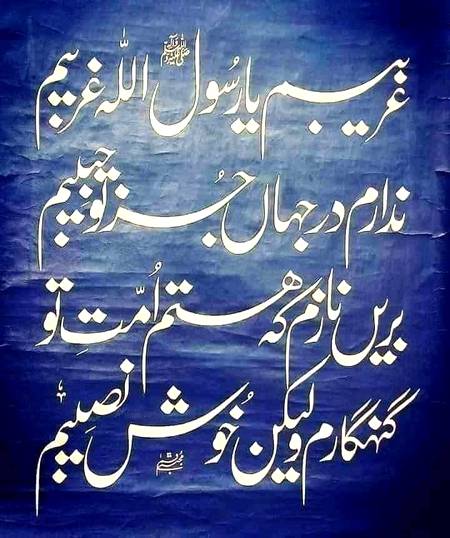 غریبم یا رسُول اللہ غریبم
ندارم در جہاں جُز تو حبیبم
بریں نازم کہ ہستم اُمّتِ تو
گنہگارم ولیکن خُوش نصیبم